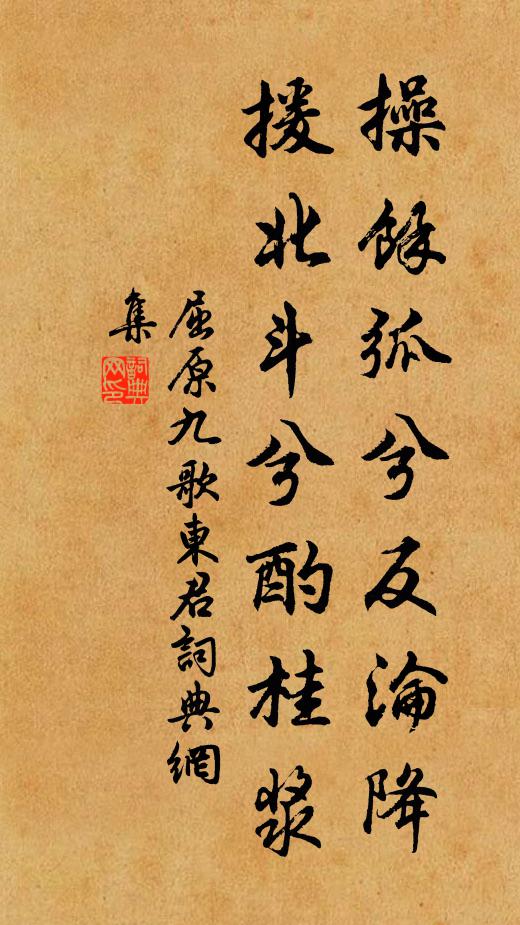 操餘弧兮反淪降
援北斗兮酌桂漿
屈原九歌東君詞典網
集
詞典
网印